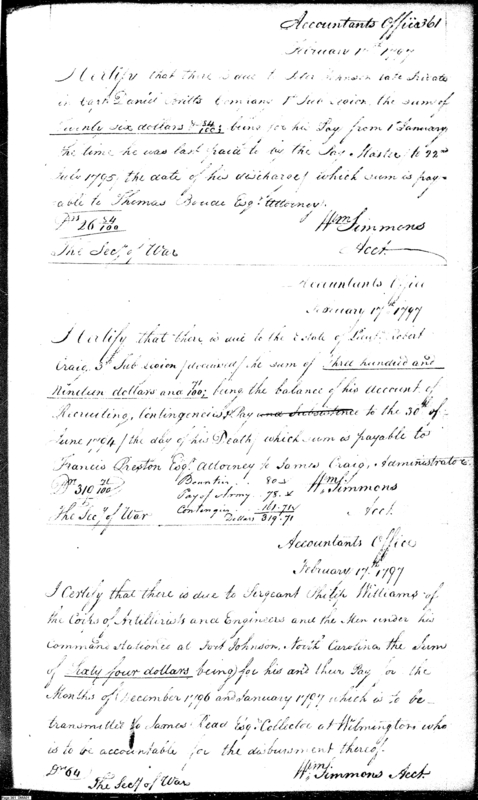 Accountants Office 361
February 17th 1797
I Certify that there is due to Peter Johnson late Private
in Capt. Daniel Britts Company 1st Sub Legion the sum of
Twenty six dollars & 34/100; being for his Pay from 1st January
the time he was last paid to by the Pay-Master to 22nd
July 1795, the date of his discharge, which sum is pay-
able to Thomas Boude Esqr. Attorney.
Drs 26 34/100
Wm Simmons
The Secy. of War
Acct.
Accountants Office
February 17th 1797
I Certify that there is due to the Estate of Lieut. Robert
Craig, 3d Sub Legion (deceased) the sum of Three hundred and
Nineteen dollars and 71/100; being the balance of his account of
Recruiting, Contingencies & Pay and Subsistence to the 30th of
June 1794 / the day of his Death / which sum is payable to
Francis Preston Esqr. Attorney to James Craig, Administrator.
Drs 319 71/100
Bounties 80
Pay of Army 78
Wm Simmons
The Secy. of War
Contingen. 161.71
Dollars 319.71
Acct
Accountants Office
February 17th 1797
I Certify that there is due to Sergeant Philip Williams of
the Corps of Artillerists and Engineers and the Men under his
Command stationed at Fort Johnson, North Carolina the Sum
of Sixty four dollars being for his and their Pay for the
Months of December 1796 and January 1797 which is to be
transmitted to James Read Esqr. Collector at Wilmington who
is to be accountable for the disbursment thereof.
Drs 64
Wm Simmons Acct.
The Secy of War